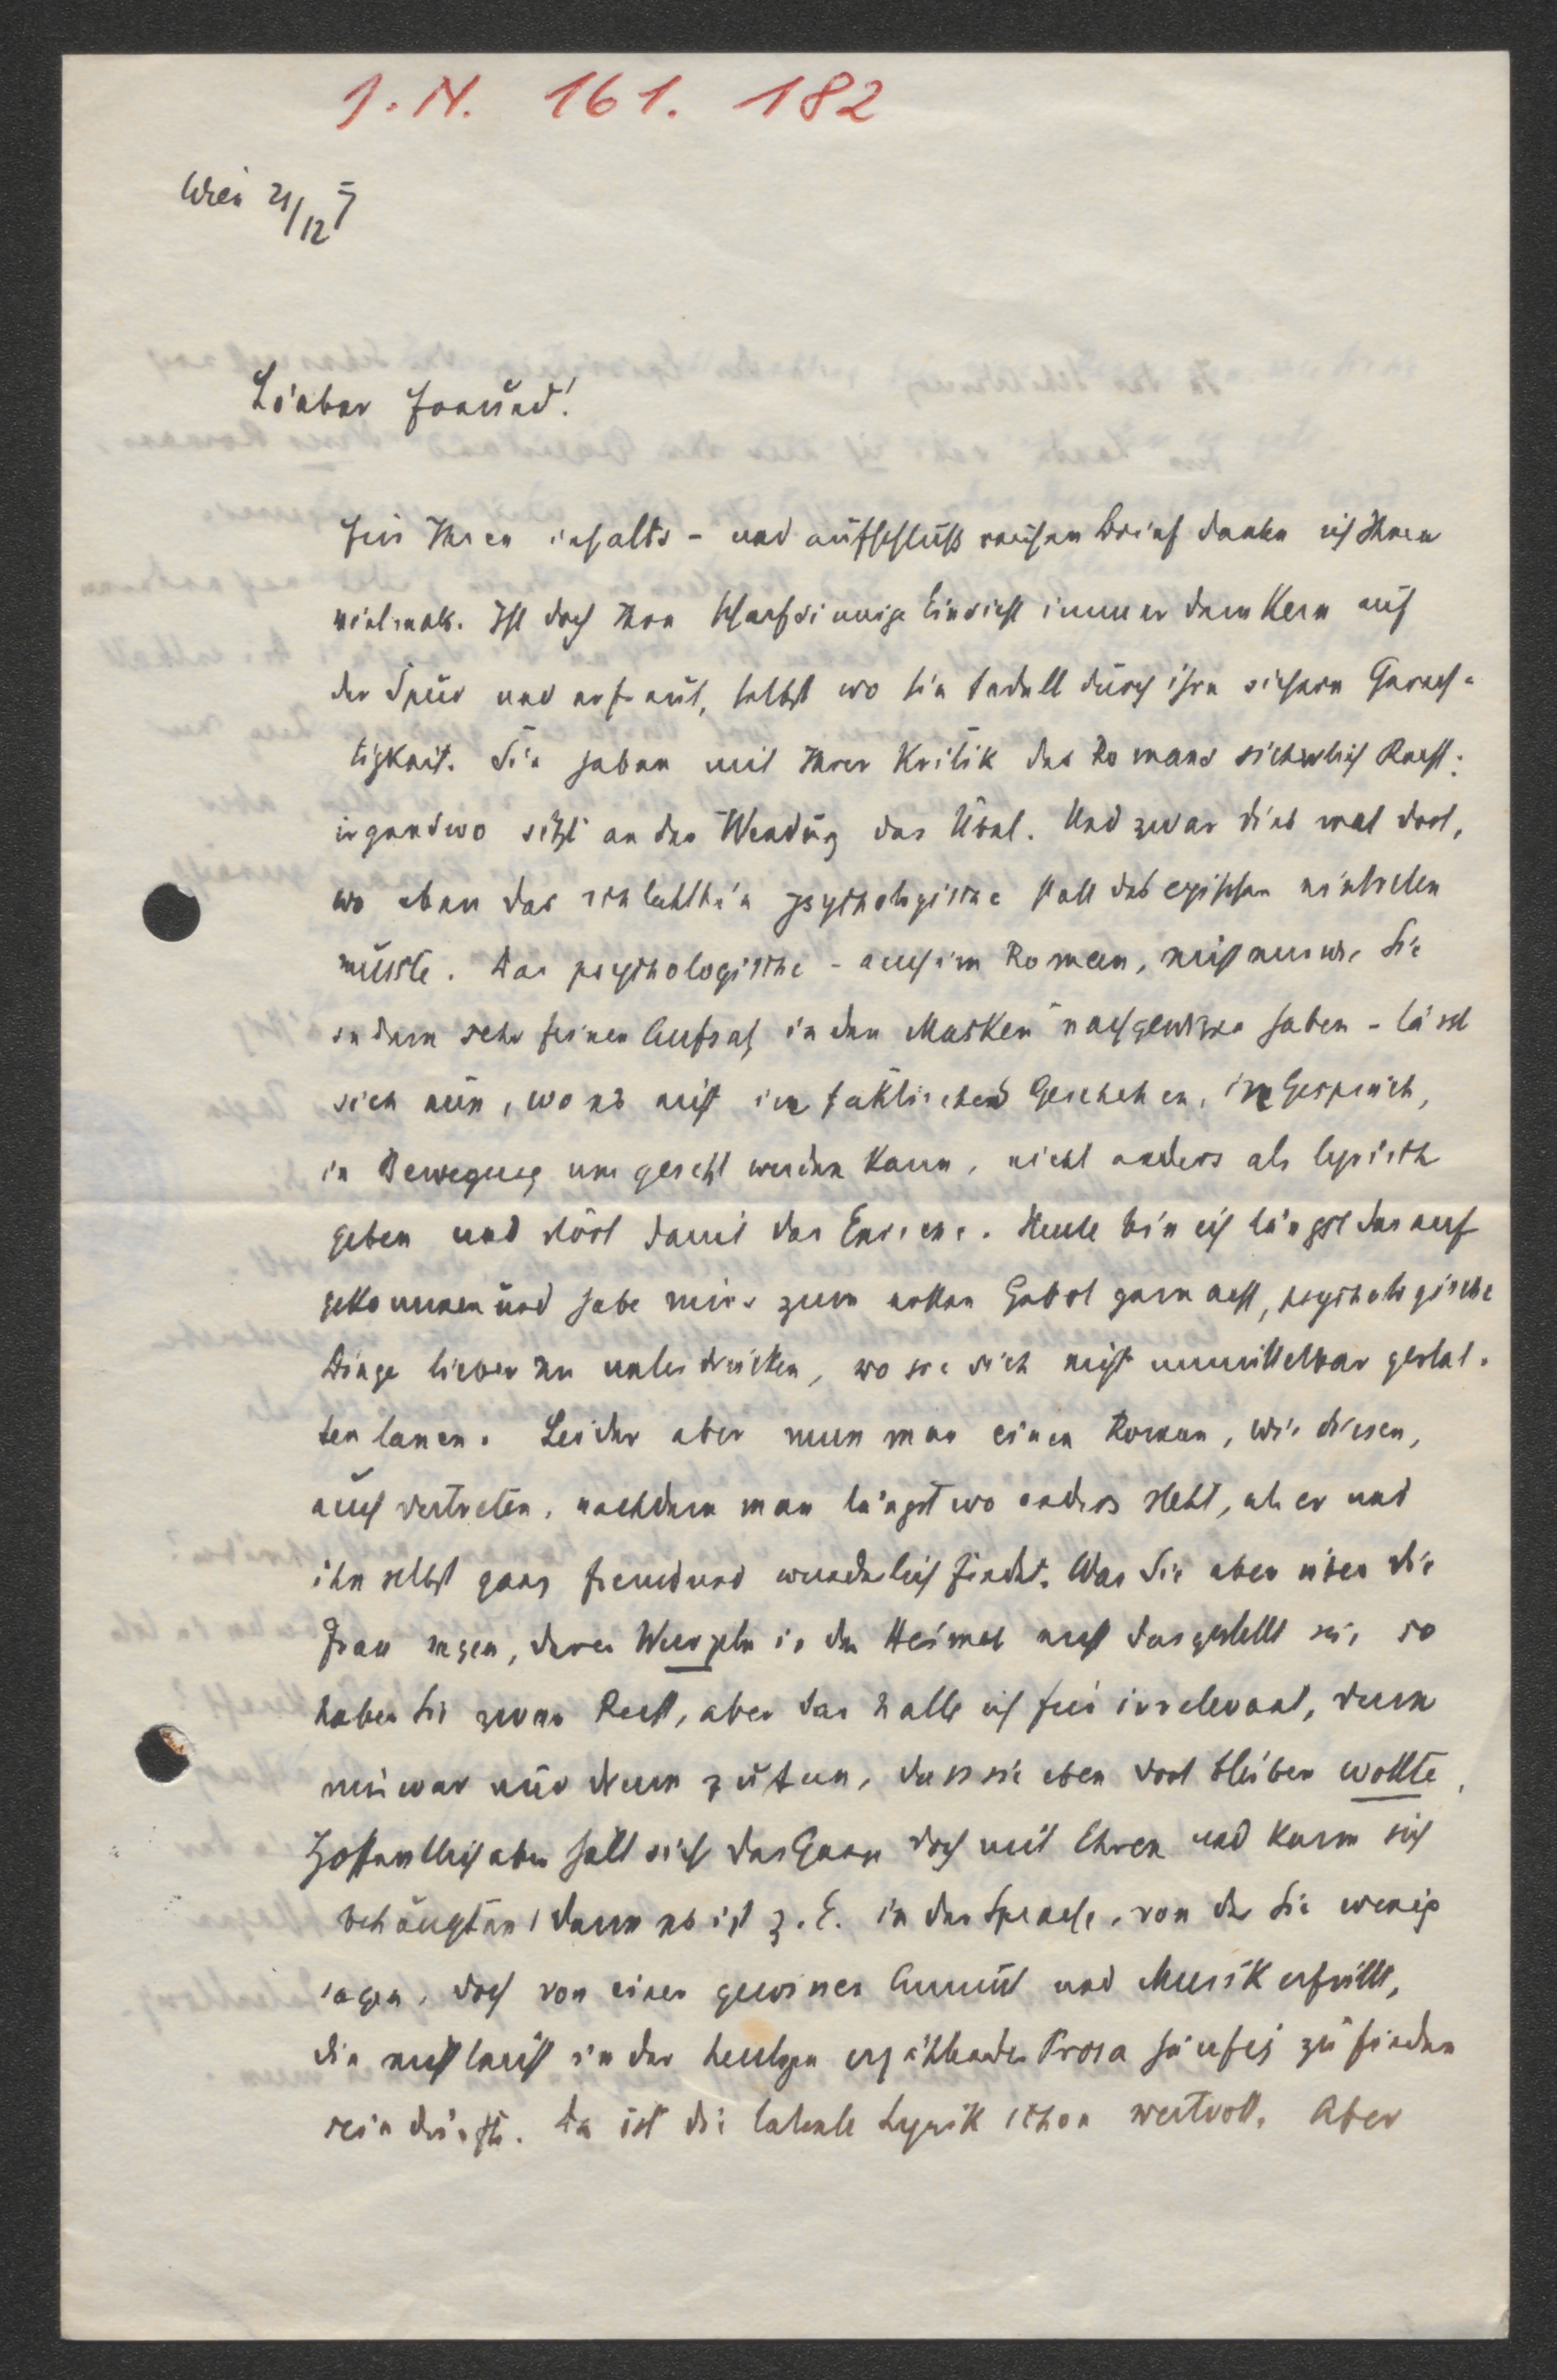 J. N. 161. 182
Wien 21/12 5
Lieber Freund!
Für Ihren inhalts- und aufschlußreichen Brief danke ich Ihnen
vielmals. Ist doch Ihre scharfsinnige Einsicht immer dem Kern auf
der Spur und erfreut, selbst wo sie tadelt durch ihre sichere Gerech-
tigkeit. Sie haben mit Ihrer Kritik des Romans sicherlich Recht:
irgendwo sitzt an der Wendung das Übel. Und zwar diesmal dort,
wo eben das schlechthin psychologische statt des epischen eintreten
müsste. Das psychologische - auch im Roman, wie Sie
in dem sehr feinen Aufsatz in den Masken nachgewiesen haben - lässt
sich nun, wo es nicht in faktisches Geschehen, in Gespräch,
in Bewegung umgesetzt werden kann, nicht anders als lyrisch
geben und stört damit das Epische. Heute bin ich längst darauf
gekommen und habe mirs zum ersten Gebot gemacht, psychologische
Dinge lieber zu unterdrücken, wo sie sich nicht unmittelbar gestal-
ten lassen. Leider aber muss man einen Roman, wie diesen,
auch vertreten, nachdem man längst wo anders steht, als er und
ihn selbst ganz fremd und wunderlich findet. Was Sie aber über die
Frau sagen, deren Wurzeln in der Heimat nicht dargestellt sei, so
haben Sie zwar Recht, aber das halte ich für irrelevant, denn
mir war nur drum zu tun, dass sie eben dort bleiben wollte.
Hoffentlich aber hält sich das Ganze doch mit Ehren und kann sich
behaupten, denn es ist z. E. in der Sprache, von der Sie wenig
sagen, doch von einer gewissen Anmut und Musik erfüllt,
die nicht leicht in der heutigen erzählenden Prosa häufig zu finden
sein dürfte. Da ist die latente Lyrik schon wertvoll. Aber